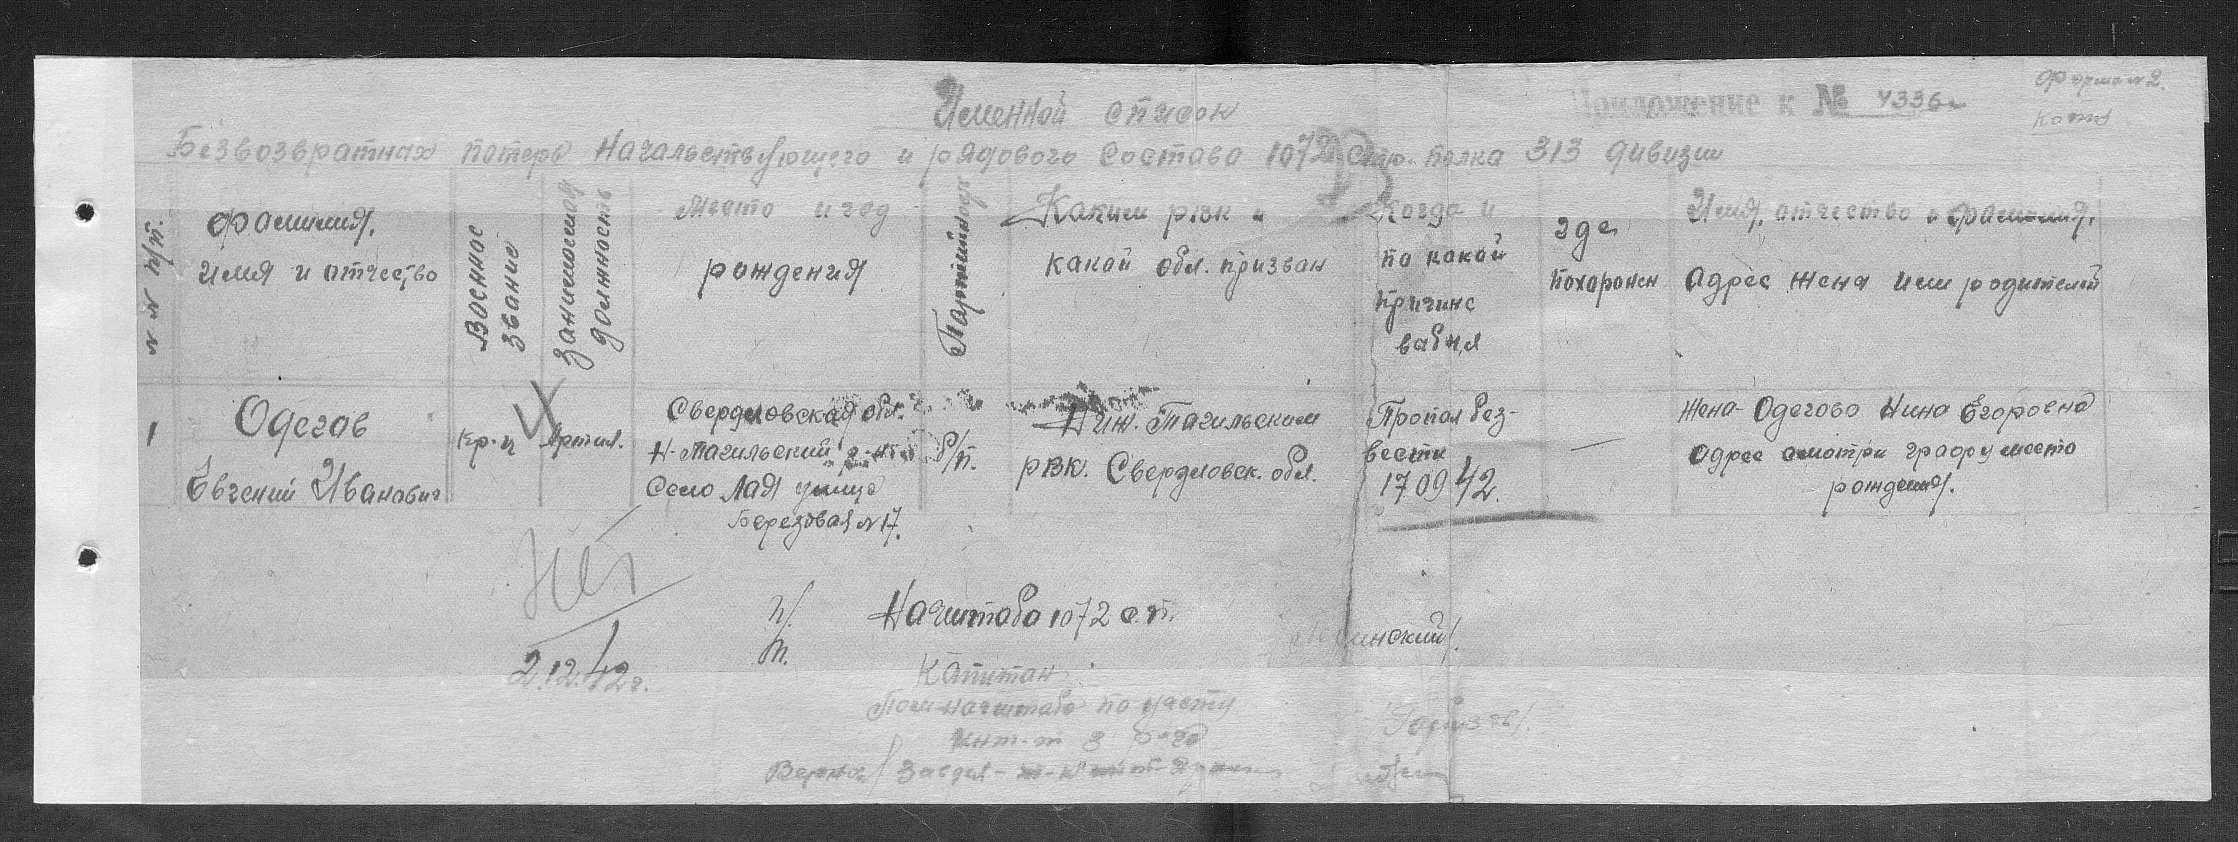 Форма №2.
Приложение к № 4336с
Именной список
Безвозвратных потерь Начальствующего и рядового состава 1072 стр. полка 313 дивизии
№ № п/п.
Фамилия,
имя и отчество
Военное
звание
Занимаемая
должность
Место и год
рождения
Партийность
Каким рвк и
какой обл. призван
Когда и
по какой
причине
выбыл
где
похоронен
Имя, отчество и фамилия,
Адрес жена или родителей
1
Одегов
Евгений Иванович
кр-ц
Артил.
Свердловская обл.
Н-Тагильский р-н
Село Лая улица
Березовая №17.
б/п.
Ниж. Тагильским
рвк. Свердловск. обл.
Пропал без-
вести
17 09 42.
—
Жена - Одегова Нина Егоровна
Адрес смотри графу место
рождения.
Нет
2.12.42г.
п/
п.
Начштаба 1072 с.п.
Капитан
Пом. начштаба по учету
инт-т 3 ранга